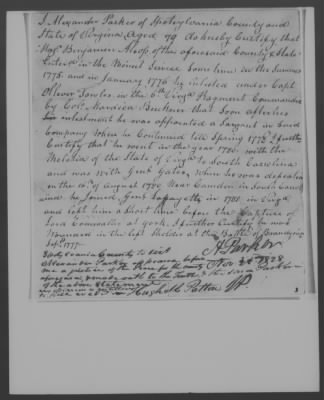 I Alexander Parker of Spotsylvania County and
State of Virginia Aged 79 do hereby Certify that
Majr Benjamin Alsop of the aforesaid County & State
Entered in the Minute Service some time in the Summer
1775 and in January 1776 he inlisted under Capt
Oliver Towles in the 6th Virga Regiment Commanded
by Colo. Mordica Buckner that soon after his
inlistment he was appointed a Sargent in said
Company when he Continued till Spring 1778 I further
Certify that he went in the year 1780 with the
Melitia of the State of Virga to South Carolina
and was with Genl Gates when he was defeated
on the 16th of August 1780 Near Camden in South Carolina
and he Joined Genl Lafayette in 1781 in Virga
and left him a short time before the Capture of
Lord Cornwallis at York, I further Certify he was
Wounded in the left sholder at the Battle of Brandywine
Sept. 1777.
A. Parker
Spotsylvania County to wit
Alexander Parker appeared before
me a Justice of the Peace for the County Nov. 1828
aforesaid & made oath to the truth
of the above Statement